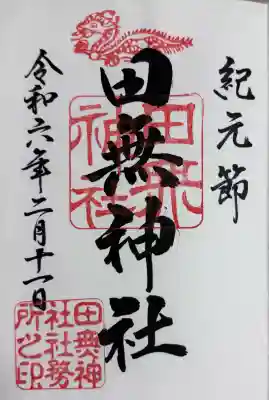 紀元節
田無神社
令和六年二月十一日
田無神社
田無神
社社務
所之印